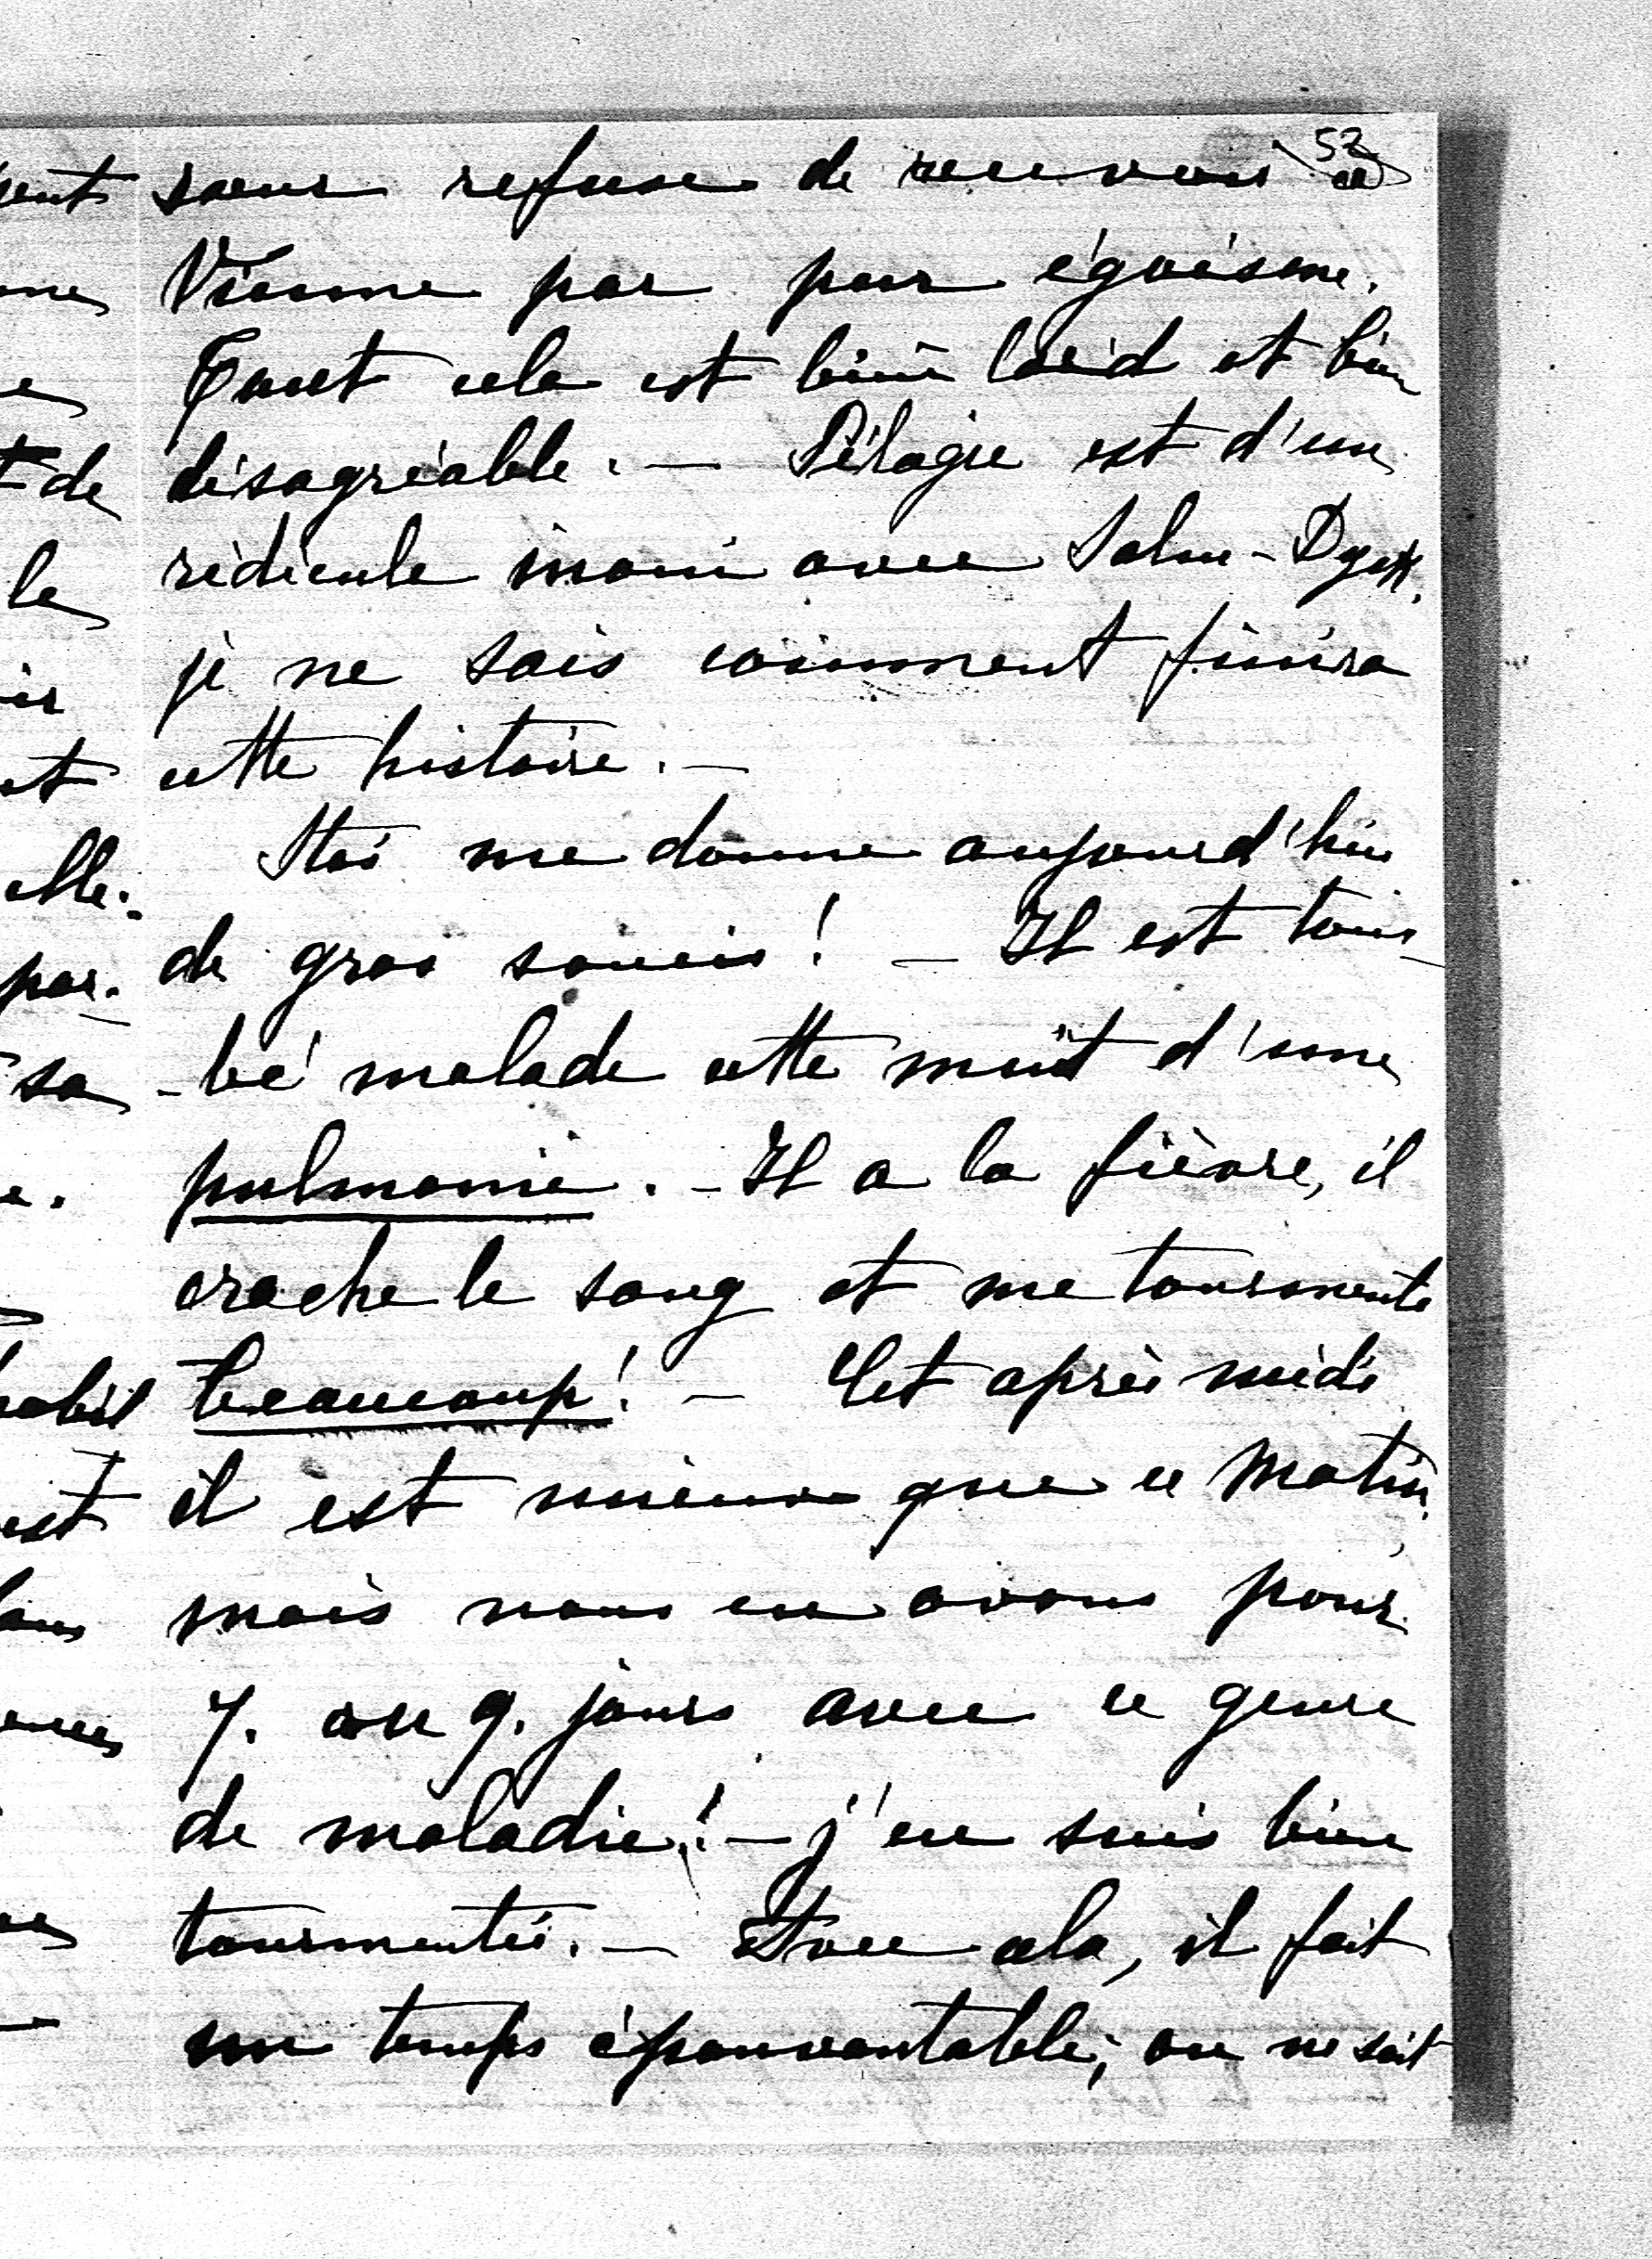 53
sœur refuse de recevoir à
Vienne par pur égoïsme.
Tout cela est bien laid et bien
désagréable. — Pélagie est d'un
ridicule inouï avec Salm-Dyck,
je ne sais comment finira
cette histoire. —
me donne aujourd'hui
de gros soucis! — Il est tom-
-bé malade cette nuit d'une
pulmonie. — Il a la fièvre, il
crache le sang et me tourmente
beaucoup! — Cet après midi
il est mieux que ce matin,
mais nous en avons pour
7. ou 9. jours avec ce genre
de maladie! — j'en suis bien
tourmentée. — Avec cela, il fait
un temps épouvantable; on ne sait
de
le
et
elle.
par-
sa
est